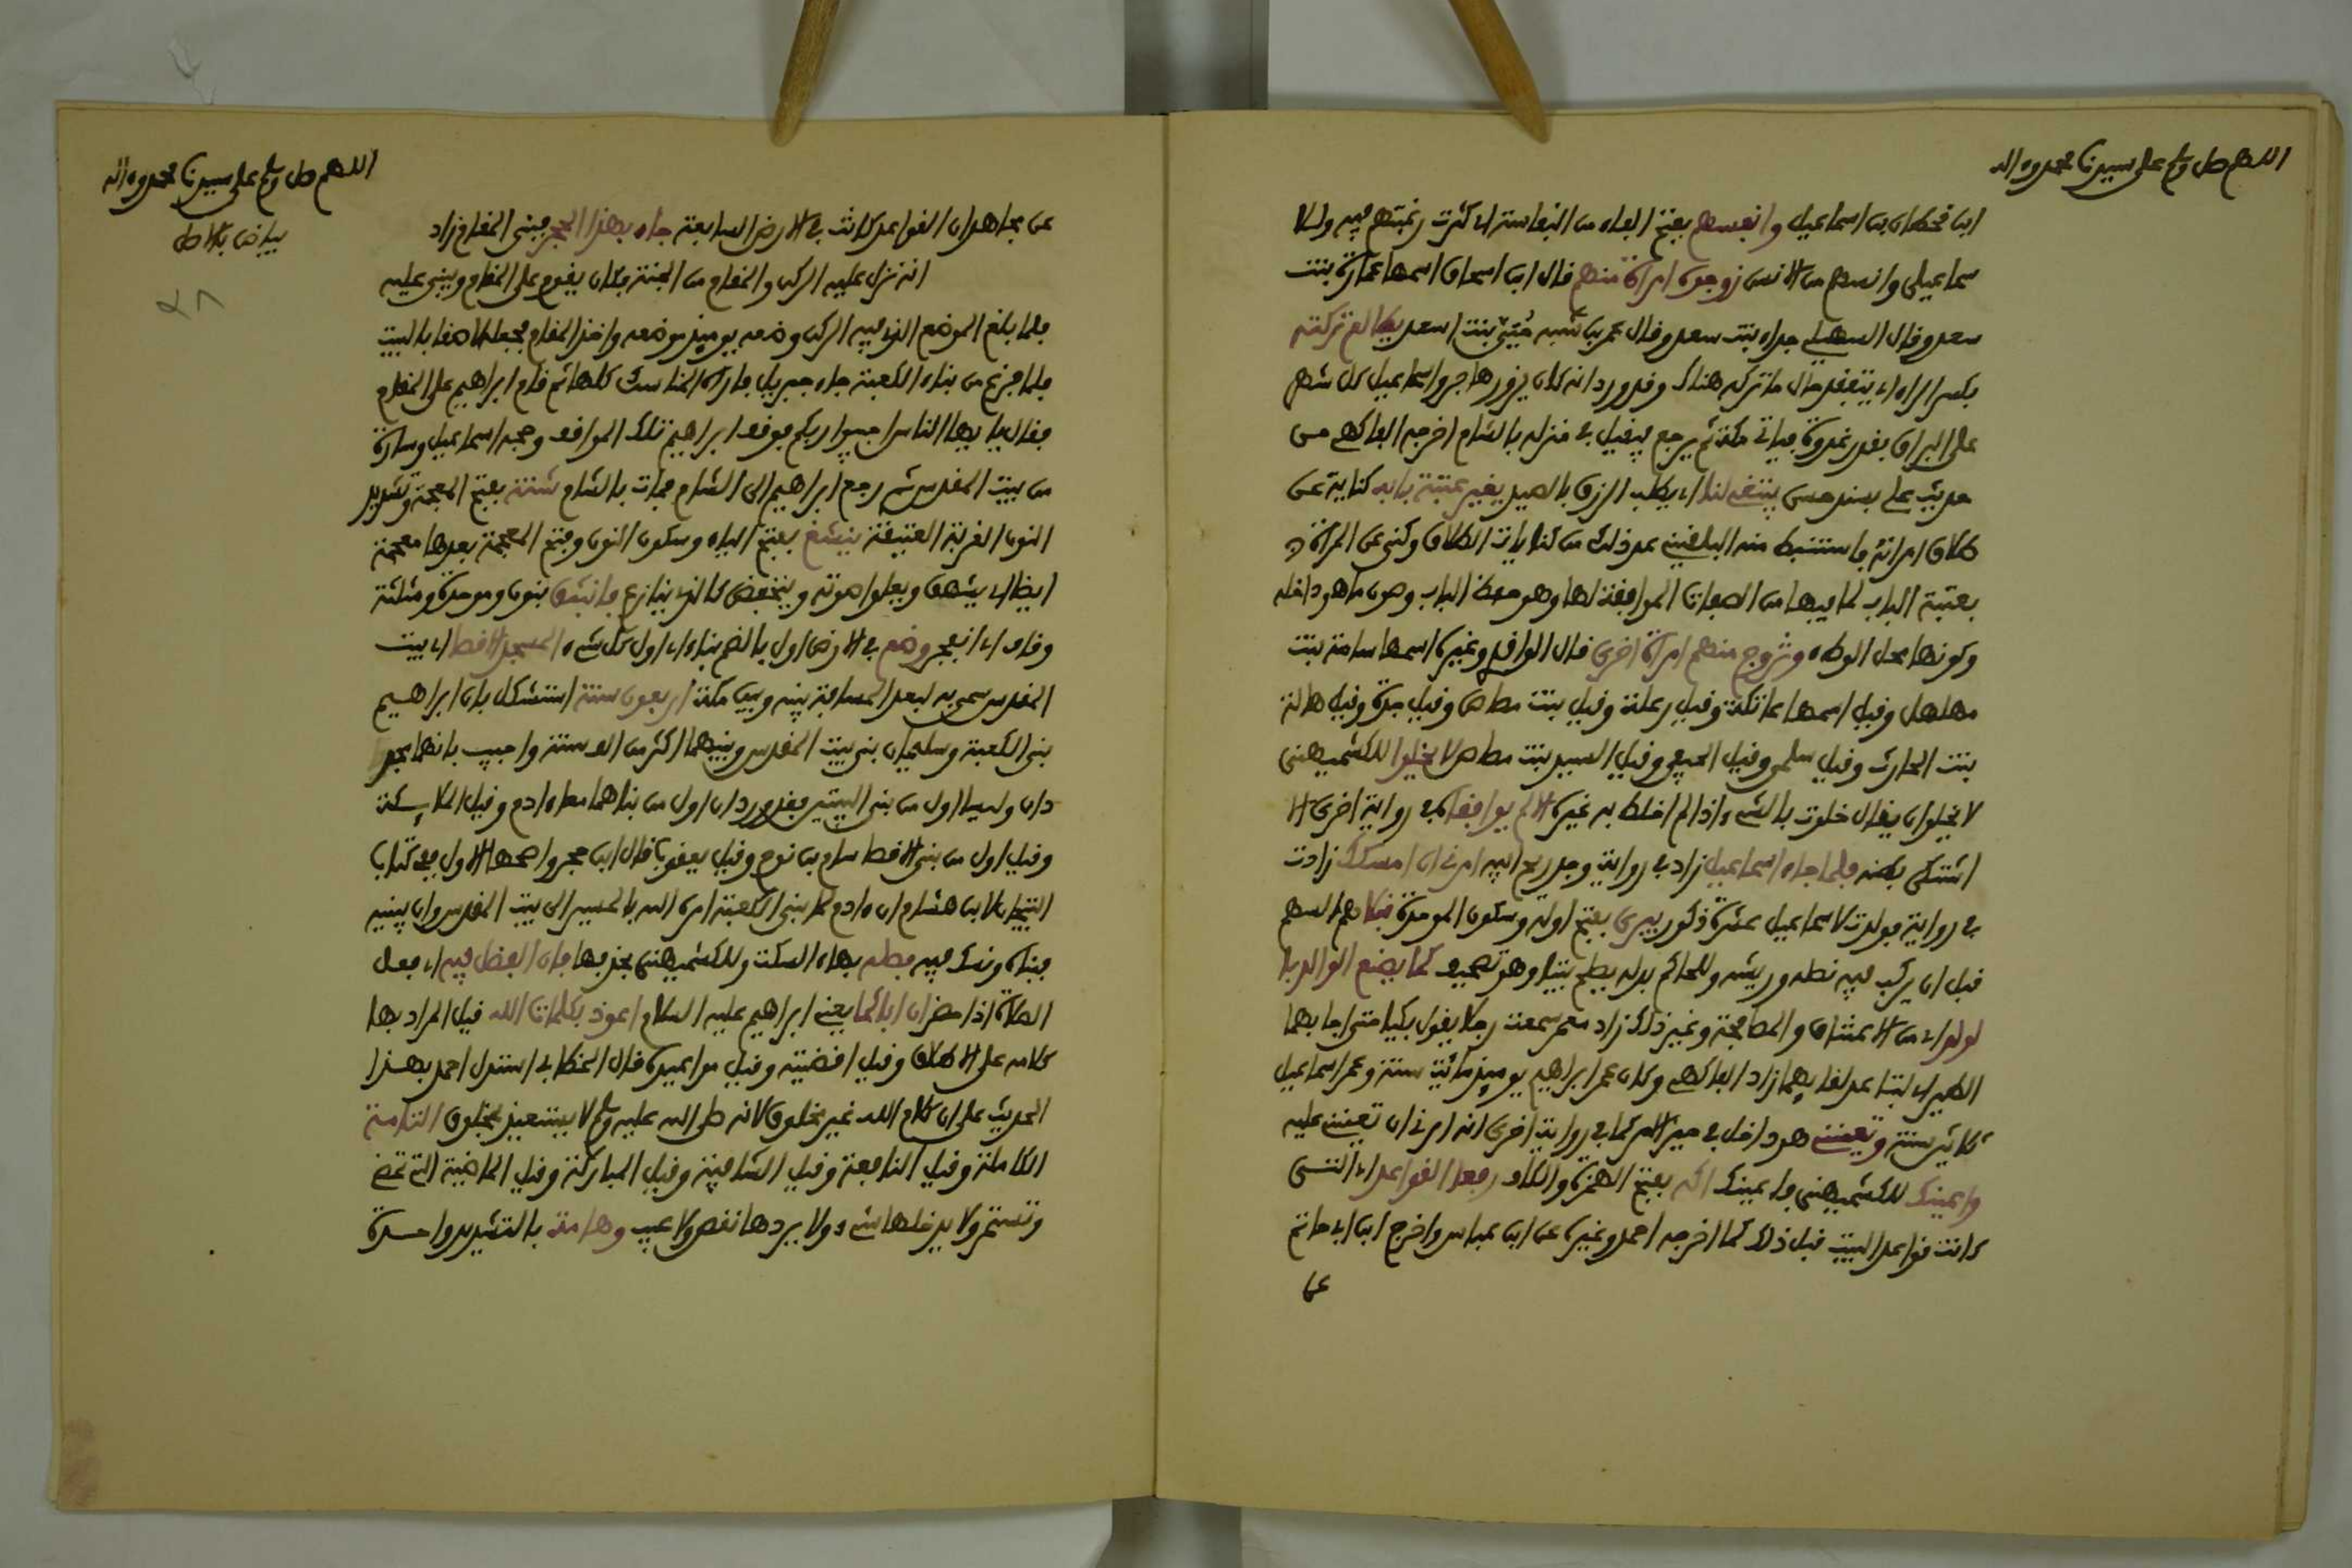 اللهم صل وسلم على سيدنا محمد وءاله
ابن قحطان بن اسماعيل وانفسهم بفتح الفاء من النفاسة اي كثرت رغبتهم فيه ولل
سماعيلي وانسهم من الانس زوجوه امراة منهم قال ابن اسحاق اسمها عمارة بنت
سعد وقال السهيلي جداء بنت سعد وقال عمر بن شبه حيى بنت اسعد يطالع تركته
بكسر الراء اي يتفقد حال ما تركه هناك وقد ورد انه كان يزور هاجر واسماعيل كل شهر
على البراق يغدو غدوة فياتي مكة ثم يرجع فيقيل في منزله بالشام اخرجه الفاكهي من
حديث علي بسند حسن يبتغي لنا اي يطلب الرزق بالصيد يغير عتبة بابه كناية عن
طلاق امراته فاستنبط منه البلقيني عد ذلك من كنايات الطلاق وكنى عن المراة
بعتبة الباب لما فيها من الصفات الموافقة لها وهو حفظ الباب وصون ما هو داخله
وكونها محل الوطء وتزوج منهم امراة اخرى قال الواقدي وغيره اسمها سامة بنت
مهلهل وقيل اسمها عاتكة وقيل رعلة وقيل بنت مضاض وقيل جدة وقيل هالة
بنت الحارث وقيل سلمى وقيل الحيفى وقيل السيد بنت مضاض لا يخلوا للكشميهني
لا يخلوان يقال خلوت بالشيء اذا لم اخلط به غيره الا لم يوافقاه في رواية اخرى الا
اشتكى بطنه فلما جاء اسماعيل زاد في رواية وجد ريح ابيه امرني ان امسكك زادت
في رواية فولدت لاسماعيل عشرة ذكور يبرى بفتح اوله وسكون الموحدة نبلا هو السهم
قبل ان يركب فيه نصله وريشه وللحاكم بدله يصلح بيتا وهو تصحيف كما يصنع الوالد با
لولد اي من الاعتناق والمصافحة وغير ذلك زاد معمر سمعت رجلا يقول بكيا حتى اجابهما
الطير اي لتباعد لقايهما زاد الفاكهي وكان عمر ابراهيم يوميذ مائة سنة وعمر اسماعيل
ثلاثين سنة وتعينني هو داخل في حيز الامر كما في رواية اخرى انه امرني ان تعينني عليه
واعينك للكشميهني فاعينك اكمه بفتح الهمزة والكاف رفعا القواعد اي التي
كانت قواعد البيت قبل ذلك كما اخرجه احمد وغيره عن ابن عباس واخرج ابن ابي حاتم
عن
اللهم صل وسلم على سيدنا محمد وءاله
بياض بالاصل
٢٨
عن مجاهد ان القواعد كانت في الارض السابعة جاء بهذا الحجر فبنى المقام زاد
انه نزل عليه الركن والمقام من الجنة فكان يقوم على المقام ويبنى عليه
فلما بلغ الموضع الذي فيه الركن وضعه يوميذ موضعه واخذ المقام فجعله لاصقا بالبيت
فلما فرغ من بناء الكعبة جاء جبريل فاراه المناسك كلها ثم قام ابراهيم على المقام
فقال يا ايها الناس اجيبوا ربكم فوقف ابراهيم تلك المواقف وحجه اسماعيل وسارة
من بيت المقدس ثم رجع ابراهيم الى الشام فمات بالشام شنة بفتح المعجمة وتشديد
النون القربة العتيقة ينشغ بفتح الياء وسكون النون وفتح المعجمة بعدها معجمة
ايضا اي يشهق ويعلوا صوته وينخفض كالذي ينازع فانبثق بنون وموحدة ومثلثة
وقاف اي انفجر وضع في الارض اول بالضم بناء اي اول كل شيء المسجد الاقصا اي بيت
المقدس سمي به لبعد المسافة بينه وبين مكة اربعون سنة استشكل بان ابراهيم
بنى الكعبة وسليمان بنى بيت المقدس وبينهما اكثر من الف سنة واجيب بانهما مجد
دان وليسا اول من بنى البيتين فقد ورد ان اول من بناهما معا ءادم وقيل الملايكة
وقيل اول من بنى الاقصا سام بن نوح وقيل يعقوب قال ابن حجر واصحها الاول ففي كتاب
التيجان لابن هشام ان ءادم لما بنى الكعبة امره الله بالمسير الى بيت المقدس وان يبنيه
فبناه ونسك فيه فصله بهاء السكت وللكشميهني بحذفها فان الفضل فيه اي فعل
الصلاة اذا حضر ان اباكما يعني ابراهيم عليه السلام اعوذ بكلمات الله قيل المراد بها
كلامه على الاطلاق وقيل اقضيته وقيل مواعيده قال الخطابي استدل احمد بهذا
الحديث على ان كلام الله غير مخلوق لانه صلى الله عليه وسلم لا يستعيذ بمخلوق التامة
الكاملة وقيل النافعة وقيل الشافية وقيل المباركة وقيل الماضية التي تمضي
وتستمر ولا يدخلها شيء ولا يردها نقص ولا عيب وهامة بالتشديد واحدة